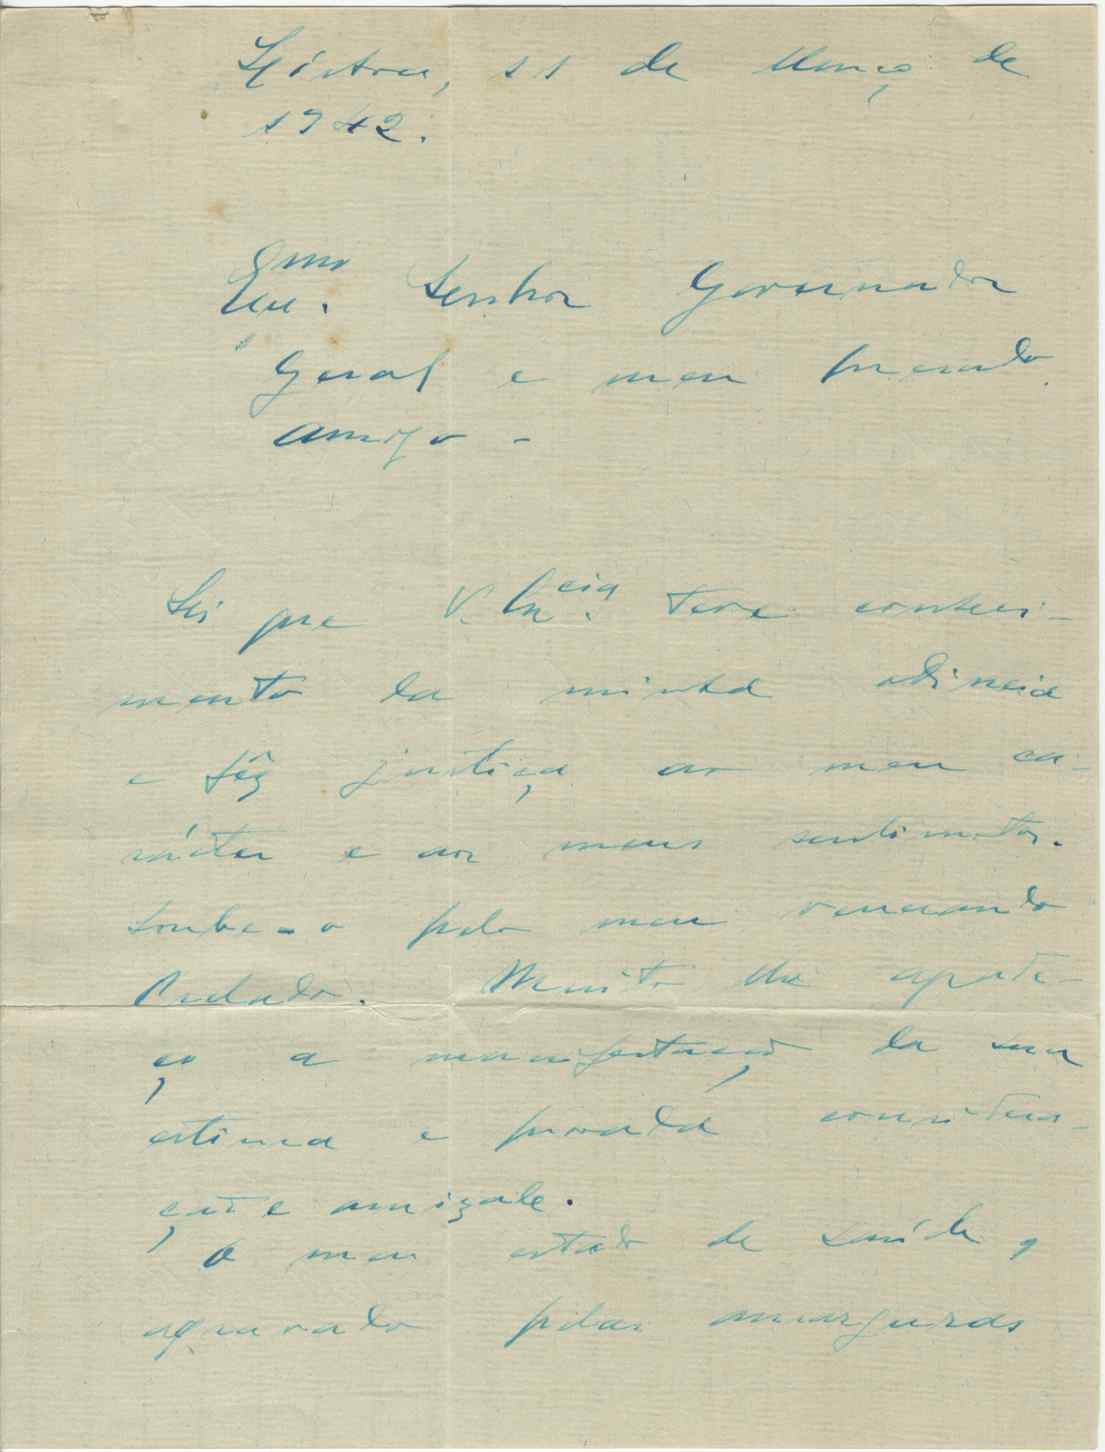 Lisboa, 11 de Março de
1942.
Exmo
Snr. Senhor Governador
Geral e meu prezado
amigo -
Sei que V. Excia. teve conheci-
mento da minha
e fêz justiça ao meu ca-
rácter e aos meus sentimentos.
Soube-o pelo meu venerando
Prelado. Muito lhe agrade-
ço a manifestação da sua
estima e provada considera-
ção e amizade.
O meu estado de saúde,
agravado pelas amarguras